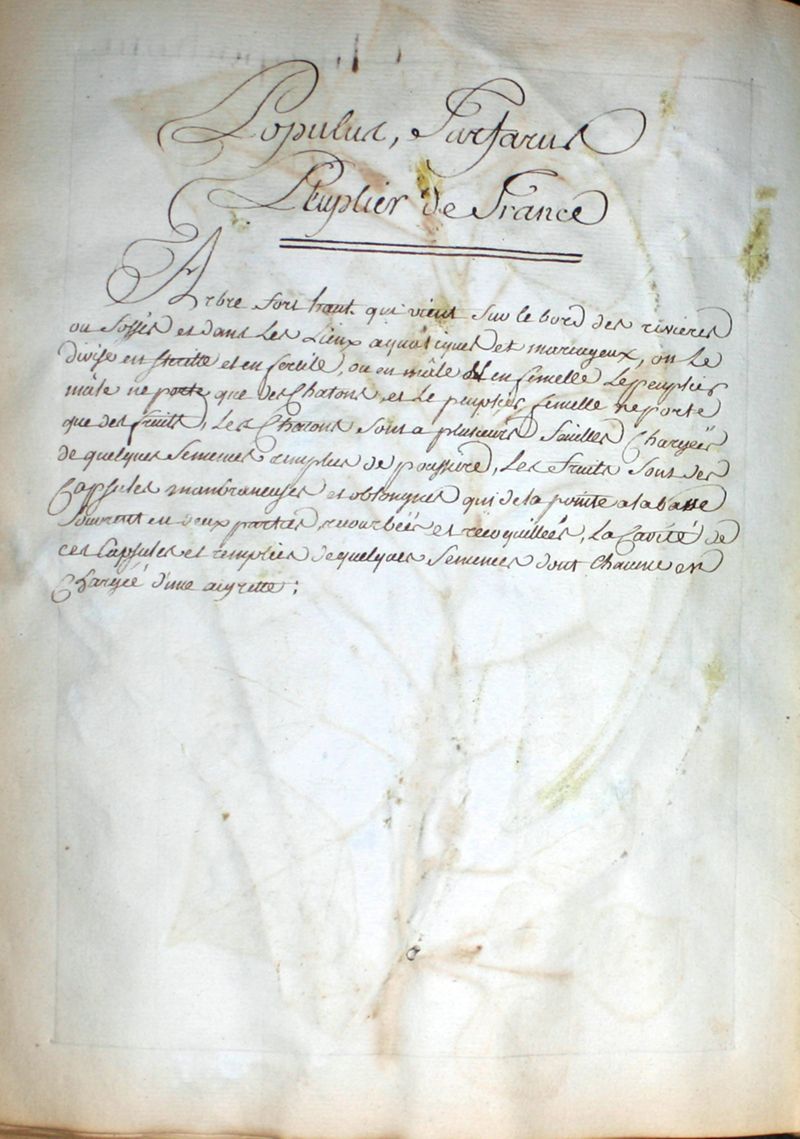 Populus, Tartarus
Peuplier de France
Arbre fort haut qui vient sur le bord des rivieres
ou fossés et dans les Lieux aquatiques et marecageux, on Le
divise en sterille et en fertile, ou en mâle et en femelle Le peuplier
mâle ne porte que des Chatons, et Le peuplier femelle ne porte
que des fruits, Les Chatons sont a plusieurs feuilles Chargées
de quelques semences remplies de poussiere, Les fruits sont des
Capsules manbraneuses et oblongues qui de la pointe a la basse
s'ouvrent en deux parties, recourbées et recoquillées, La Cavité de
ces Capsules et remplies de quelques semences dont Chacune en
Chargée d'une aigrette;